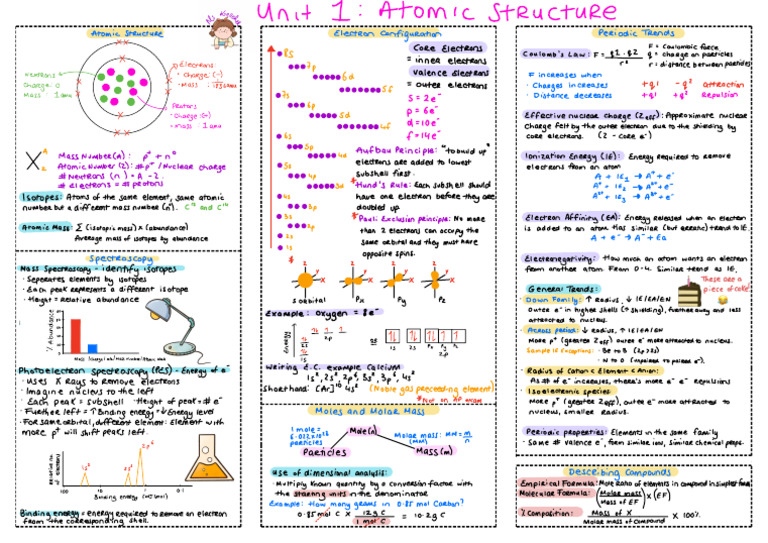 Unit 1: Atomic Structure
Atomic Structure
Electrons
Charge (-)
Neutrons
Charge: 0
Mass: 1 amu
Protons
Charge (+)
mass: 1 amu
Mass Number (A): p+ + n0
Atomic Number (Z): # p+ / Nuclear charge
# Neutrons (n) = A - Z.
# electrons = # protons
Isotopes: Atoms of the same element, same atomic
number but a different mass number (n). C12 and C14
Atomic Mass: ∑ (isotopic mass) x (abundance)
Average mass of isotopes by abundance
Spectroscopy
Mass Spectroscopy - identify isotopes
• Seperates elements by isotopes
• Each peak represents a different isotope
• Height = Relative abundance
% Abundance
Photoelectron Spectroscopy (PES) - Energy of e-
• Uses X Rays to remove electrons
• Imagine nucleus to the left
• Each peak = subshell Height of peak = # e-
• Further left = ↑ Binding energy = ↓ Energy level
• For same orbital, different element: Element with
more p+ will shift peaks left.
1s2 2s2 2p6
100 10 1 0.1
Binding energy
Binding energy = energy required to remove an electron
from the corresponding shell.
Electron Configuration
8s
7p
6d
5f
7s
6p
5d
4f
6s
5p
4d
5s
4p
3d
4s
3p
3s
2p
2s
1s
Core Electrons
= inner electrons
Valence Electrons
= outer electrons
s = 2e-
p = 6e-
d = 10e-
f = 14e-
Aufbau Principle: "to build up"
electrons are added to lowest
subshell first.
* Hund's Rule: Each subshell should
have one electron before they are
doubled up
* Pauli Exclusion principle: No more
than 2 electrons can occupy the
same orbital and they must have
opposite spins.
S orbital Px Py Pz
Example: oxygen = 8e-
Energy
1s 2s 2p
1s 2s Px Py Pz
Writing E.C. example Calcium
1s2, 2s2, 2p6, 3s2, 3p6, 4s2
Shorthand: [Ar]18 4s2 (Noble gas preceeding element)
* Not on AP exam
Moles and Molar Mass
1 mole =
6.022x10^23
particles
Mole (n)
Molar mass: MM = m/n
(MM)
Particles Mass (m)
Use of dimensional analysis:
• Multiply known quantity by a conversion factor with
the starting units in the denominator
Example: How many grams in 0.85 mol Carbon?
0.85 mol C x 12g C / 1 mol C = 10.2g C
Periodic Trends
Coulomb's Law: F = q1 · q2 / r2
F = Coulombic force
q = charge on particles
r = distance between particles
F increases when
• Charges increases
• Distance decreases
+q1 -q2 Attraction
+q1 +q2 Repulsion
Effective nuclear charge (Zeff): Approximate nuclear
charge felt by the outer electron due to the shielding by
core electrons. (Z - Core e-)
Ionization Energy (IE): Energy required to remove
electrons from an atom
A + IE1 → A+ + e-
Electron Affinity (EA): Energy released when an electron
is added to an atom. Has similar (but erratic) trend to IE.
A + e- → A- + Ea
Electronegativity: How much an atom wants an electron
from another atom. From 0-4. Similar trend as IE.
General Trends:
These are a
piece of cake
Down Family: ↑ Radius, ↓ IE/EA/EN
Outer e- in higher shells (↑ shielding), further away and less
attracted to nucleus.
Across period: ↓ radius, ↑ IE/EA/EN
More p+ (greater Zeff) outer e- more attracted to nucleus.
Sample IE Exceptions: • Be to B (2p>2s)
• N to O (unpaired to paired e-)
Radius of Cation < Element < Anion:
As # of e- increases, there's more e- e- repulsions
Isoelectronic species:
More p+ (greater Zeff), outer e- more attracted to
nucleus, smaller radius.
Periodic properties: Elements in the same family
• Same # valence e-, form similar ions, similar chemical props.
Describing Compounds
Empirical Formula: Mole ratio of elements in compound in simplest form
Molecular Formula: (Molar mass / Mass of EF) x (EF)
% Composition: Mass of X / Molar mass of compound x 100%